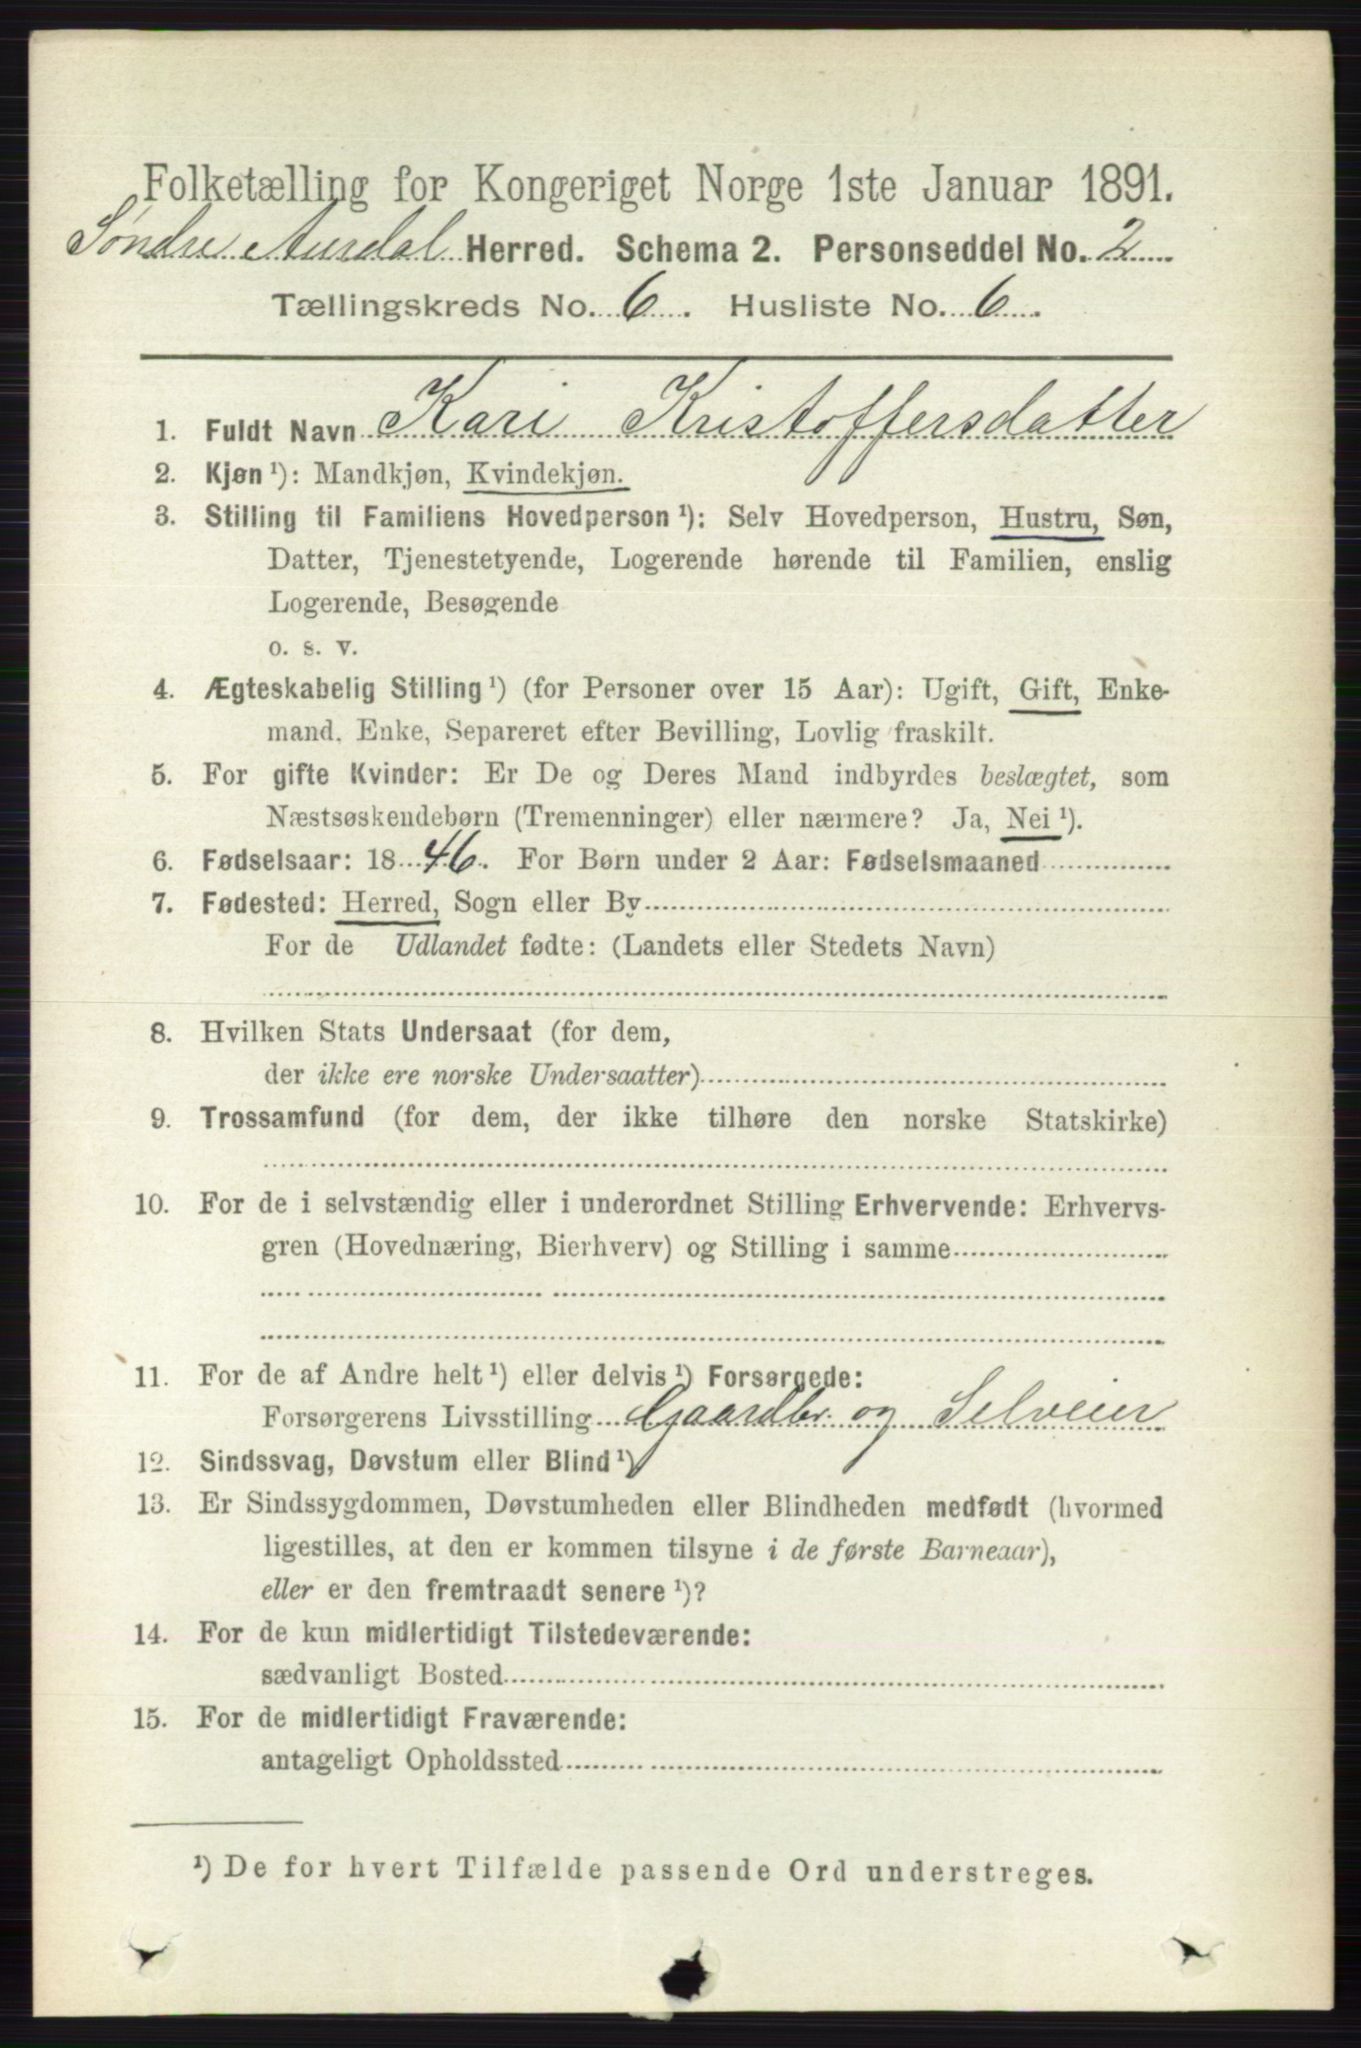 Folketælling for Kongeriget Norge 1ste Januar 1891.
Søndre Aurdal Herred. Schema 2. Personseddel No. 2
Tællingskreds No. 6. Husliste No. 6.
1. Fuldt Navn Kari Kristoffersdatter
2. Kjøn ¹): Mandkjøn, Kvindekjøn.
3. Stilling til Familiens Hovedperson ¹): Selv Hovedperson, Hustru, Søn,
Datter, Tjenestetyende, Logerende hørende til Familien, enslig
Logerende, Besøgende
o. s. v.
4. Ægteskabelig Stilling ¹) (for Personer over 15 Aar): Ugift, Gift, Enke-
mand, Enke, Separeret efter Bevilling, Lovlig fraskilt.
5. For gifte Kvinder: Er De og Deres Mand indbyrdes beslægtet, som
Næstsøskendebørn (Tremenninger) eller nærmere? Ja, Nei ¹).
6. Fødselsaar: 1846. For Børn under 2 Aar: Fødselsmaaned
7. Fødested: Herred, Sogn eller By
For de Udlandet fødte: (Landets eller Stedets Navn)
8. Hvilken Stats Undersaat (for dem,
der ikke ere norske Undersaatter)
9. Trossamfund (for dem, der ikke tilhøre den norske Statskirke)
10. For de i selvstændig eller i underordnet Stilling Erhvervende: Erhvervs-
gren (Hovednæring, Bierhverv) og Stilling i samme
11. For de af Andre helt ¹) eller delvis ¹) Forsørgede:
Forsørgerens Livsstilling Gaardbr. og Selveier
12. Sindssvag, Døvstum eller Blind ¹)
13. Er Sindssygdommen, Døvstumheden eller Blindheden medfødt (hvormed
ligestilles, at den er kommen tilsyne i de første Barneaar),
eller er den fremtraadt senere ¹)?
14. For de kun midlertidigt Tilstedeværende:
sædvanligt Bosted
15. For de midlertidigt Fraværende:
antageligt Opholdssted
¹) De for hvert Tilfælde passende Ord understreges.